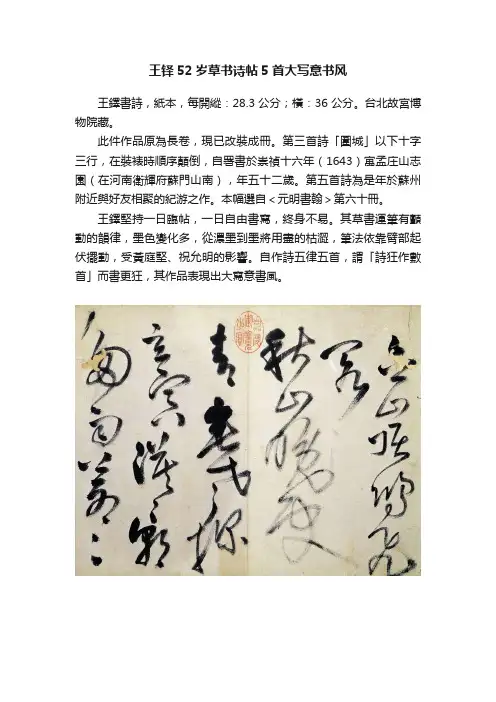 王铎 52 岁草书诗帖 5 首大写意书风
王鐸書詩，紙本，每開縱：28.3 公分；橫：36 公分。台北故宮博
物院藏。
此件作品原為長卷，現已改裝成冊。第三首詩「圍城」以下十字
三行，在裝裱時順序顛倒，自署書於崇禎十六年（1643）寓孟庄山志
園（在河南衛輝府蘇門山南），年五十二歲。第五首詩為是年於蘇州
附近與好友相聚的紀游之作。本幅選自＜元明書翰＞第六十冊。
王鐸堅持一日臨帖，一日自由書寫，終身不易。其草書運筆有顫
動的韻律，墨色變化多，從濃墨到墨將用盡的枯澀，筆法依靠臂部起
伏擺動，受黃庭堅、祝允明的影響。自作詩五律五首，謂「詩狂作數
首」而書更狂，其作品表現出大寫意書風。